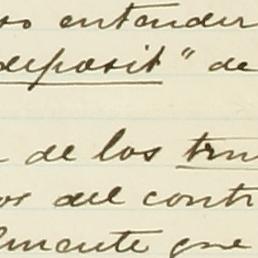 so entender
deposit" de
de los tru
or del contr
lmente que